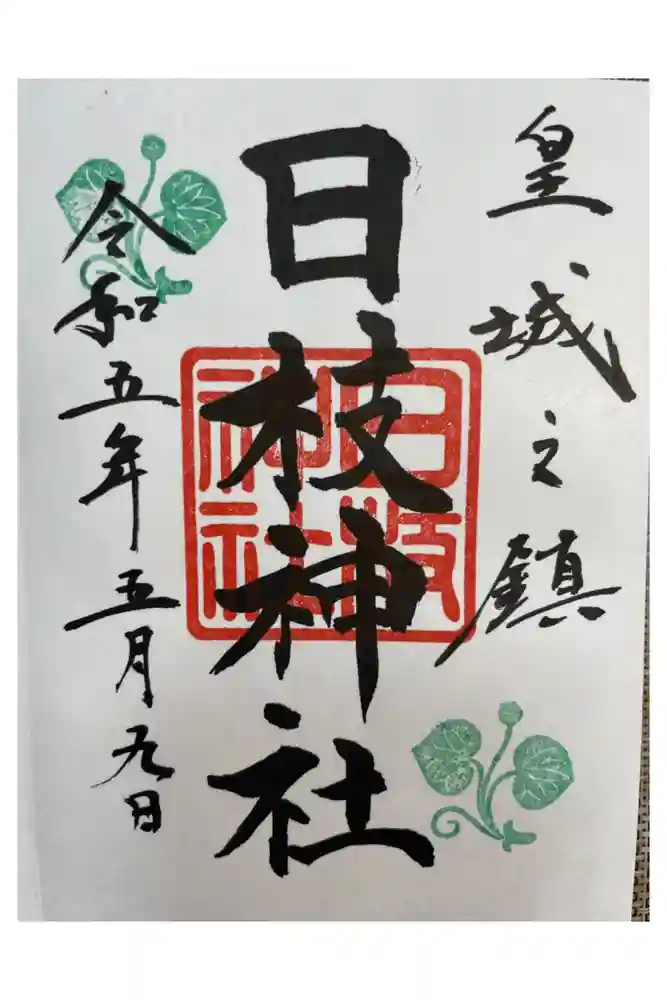 皇城之鎮
日枝神社
日枝神社
令和五年五月九日